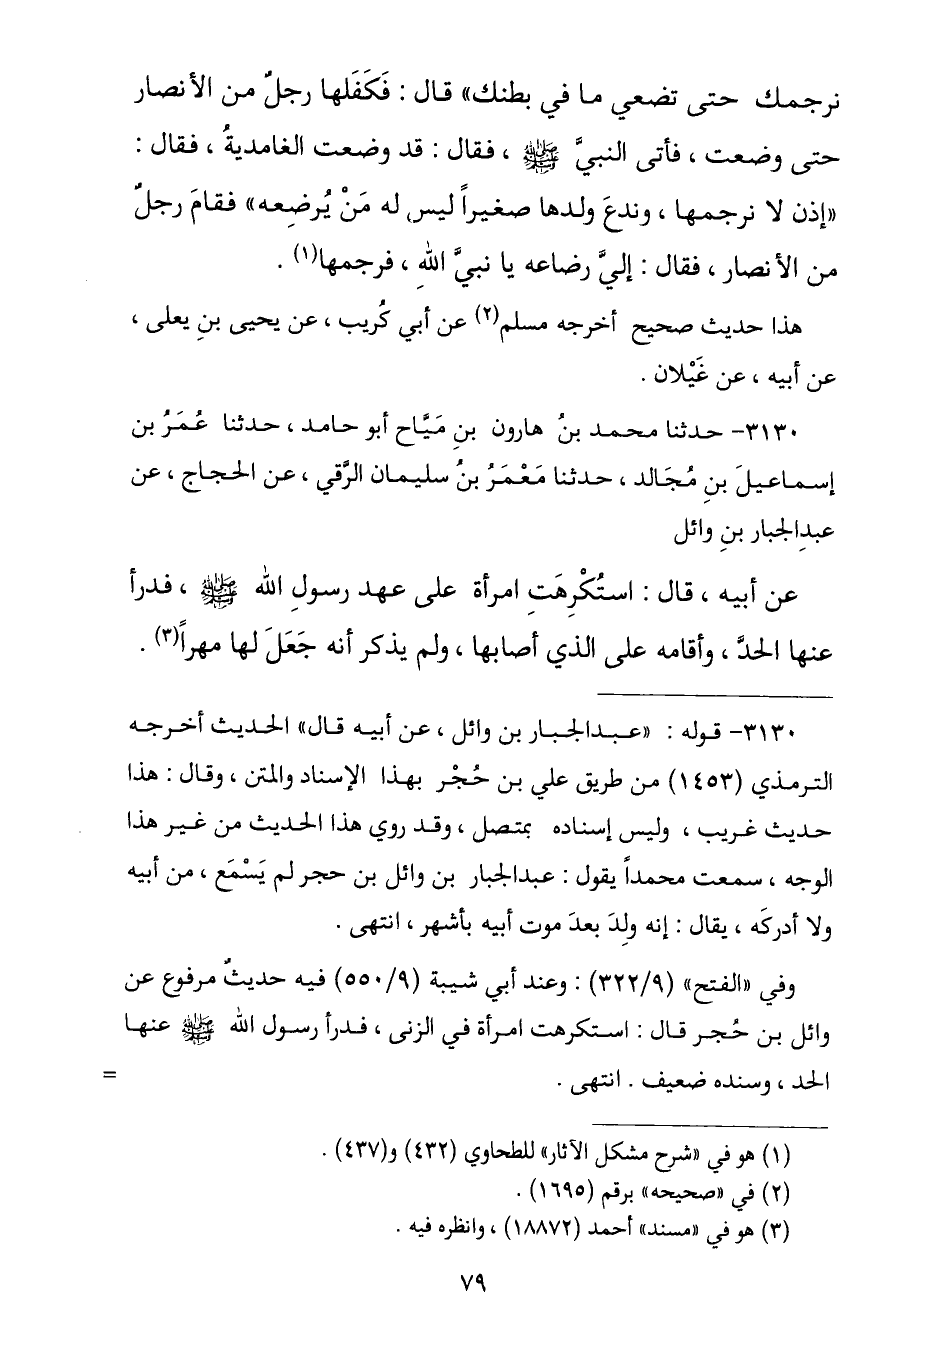 نرجمك حتى تضعي ما في بطنك» قال : فَكَفَلها رجلٌ من الأنصار
حتى وضعت ، فأتى النبيَّ ﷺ ، فقال : قد وضعت الغامديةُ ، فقال :
«إذن لا نرجمها ، وندعَ ولدها صغيراً ليس له مَنْ يُرضِعه» فقامَ رجلٌ
من الأنصار ، فقال : إليَّ رضاعه يا نبيَّ اللهِ ، فرجمها(١) .
هذا حديث صحيح أخرجه مسلم(٢) عن أبي كُريب ، عن يحيى بنِ يعلى ،
عن أبيه ، عن غَيْلان .
٣١٣٠- حدثنا محمد بنُ هارون بنِ مَيَّاح أبو حامد ، حدثنا عُمَرُ بن
إسماعيلَ بنِ مُجَالد ، حدثنا مَعْمَرُ بنُ سليمان الرَّقي ، عن الحجاج ، عن
عبدِالجبار بنِ وائل
عن أبيه ، قال : استُكْرِهَتِ امرأة على عهد رسولِ الله ﷺ ، فدرأ
عنها الحدَّ ، وأقامه على الذي أصابها ، ولم يذكر أنه جَعَلَ لها مهراً(٣) .
٣١٣٠- قوله : «عبدالجبار بن وائل ، عن أبيه قال» الحديث أخرجه
الترمذي (١٤٥٣) من طريق علي بن حُجْر بهذا الإسناد والمتن ، وقال : هذا
حديث غريب ، وليس إسناده بمتصل ، وقد روي هذا الحديث من غير هذا
الوجه ، سمعت محمداً يقول : عبدالجبار بن وائل بن حجر لم يَسْمَع ، من أبيه
ولا أدركَه ، يقال : إنه ولِدَ بعدَ موت أبيه بأشهر ، انتهى .
وفي «الفتح» (٣٢٢/٩) : وعند أبي شيبة (٥٥٠/٩) فيه حديثٌ مرفوع عن
وائل بن حُجر قال : استكرهت امرأة في الزنى ، فدرأ رسول الله ﷺ عنها
الحد ، وسنده ضعيف . انتهى . =
(١) هو في «شرح مشكل الآثار» للطحاوي (٤٣٢) و(٤٣٧) .
(٢) في «صحيحه» برقم (١٦٩٥) .
(٣) هو في «مسند» أحمد (١٨٨٧٢) ، وانظره فيه .
٧٩